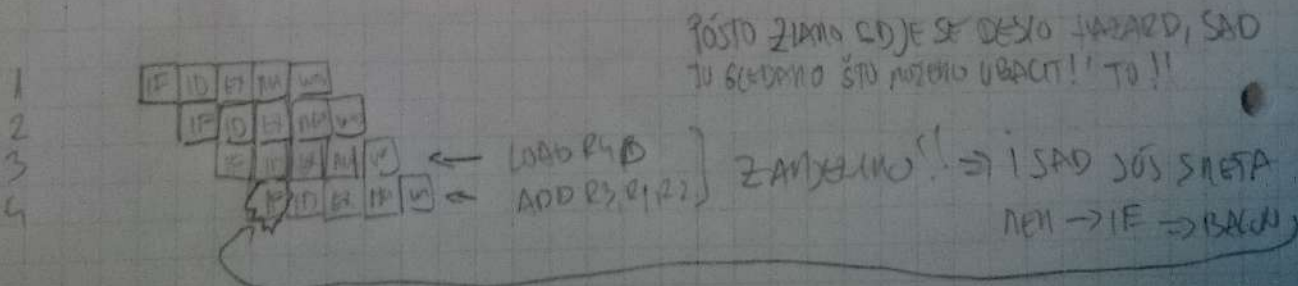 POŠTO ZNAMO GDJE SE DESIO HAZARD, SAD
TU GLEDAMO ŠTO MOŽEMO UBACIT! TO!!
1 IF ID EX MEM WB
2 IF ID EX MEM WB
3 IF ID EX MEM WB ← LOAD R4, B
4 IF ID EX MEM WB ← ADD R3, R1, R2
ZAMJENIMO!! ⇒ I SAD JOŠ SMETA
MEM → IF ⇒